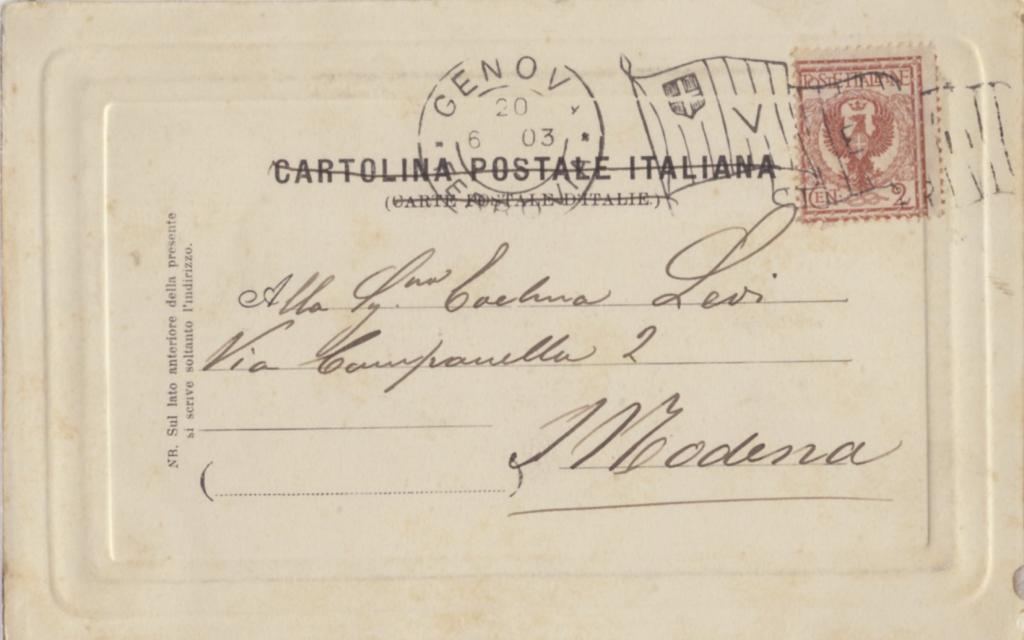 GENOVA
20
6 03
FERROVIA
V E R
CENT
POSTE ITALIANE
CEN. 2
CARTOLINA POSTALE ITALIANA
(CARTE POSTALE D'ITALIE.)
NB. Sul lato anteriore della presente
si scrive soltanto l'indirizzo.
Alla Sig.na Levi
Via Campanella 2
Modena